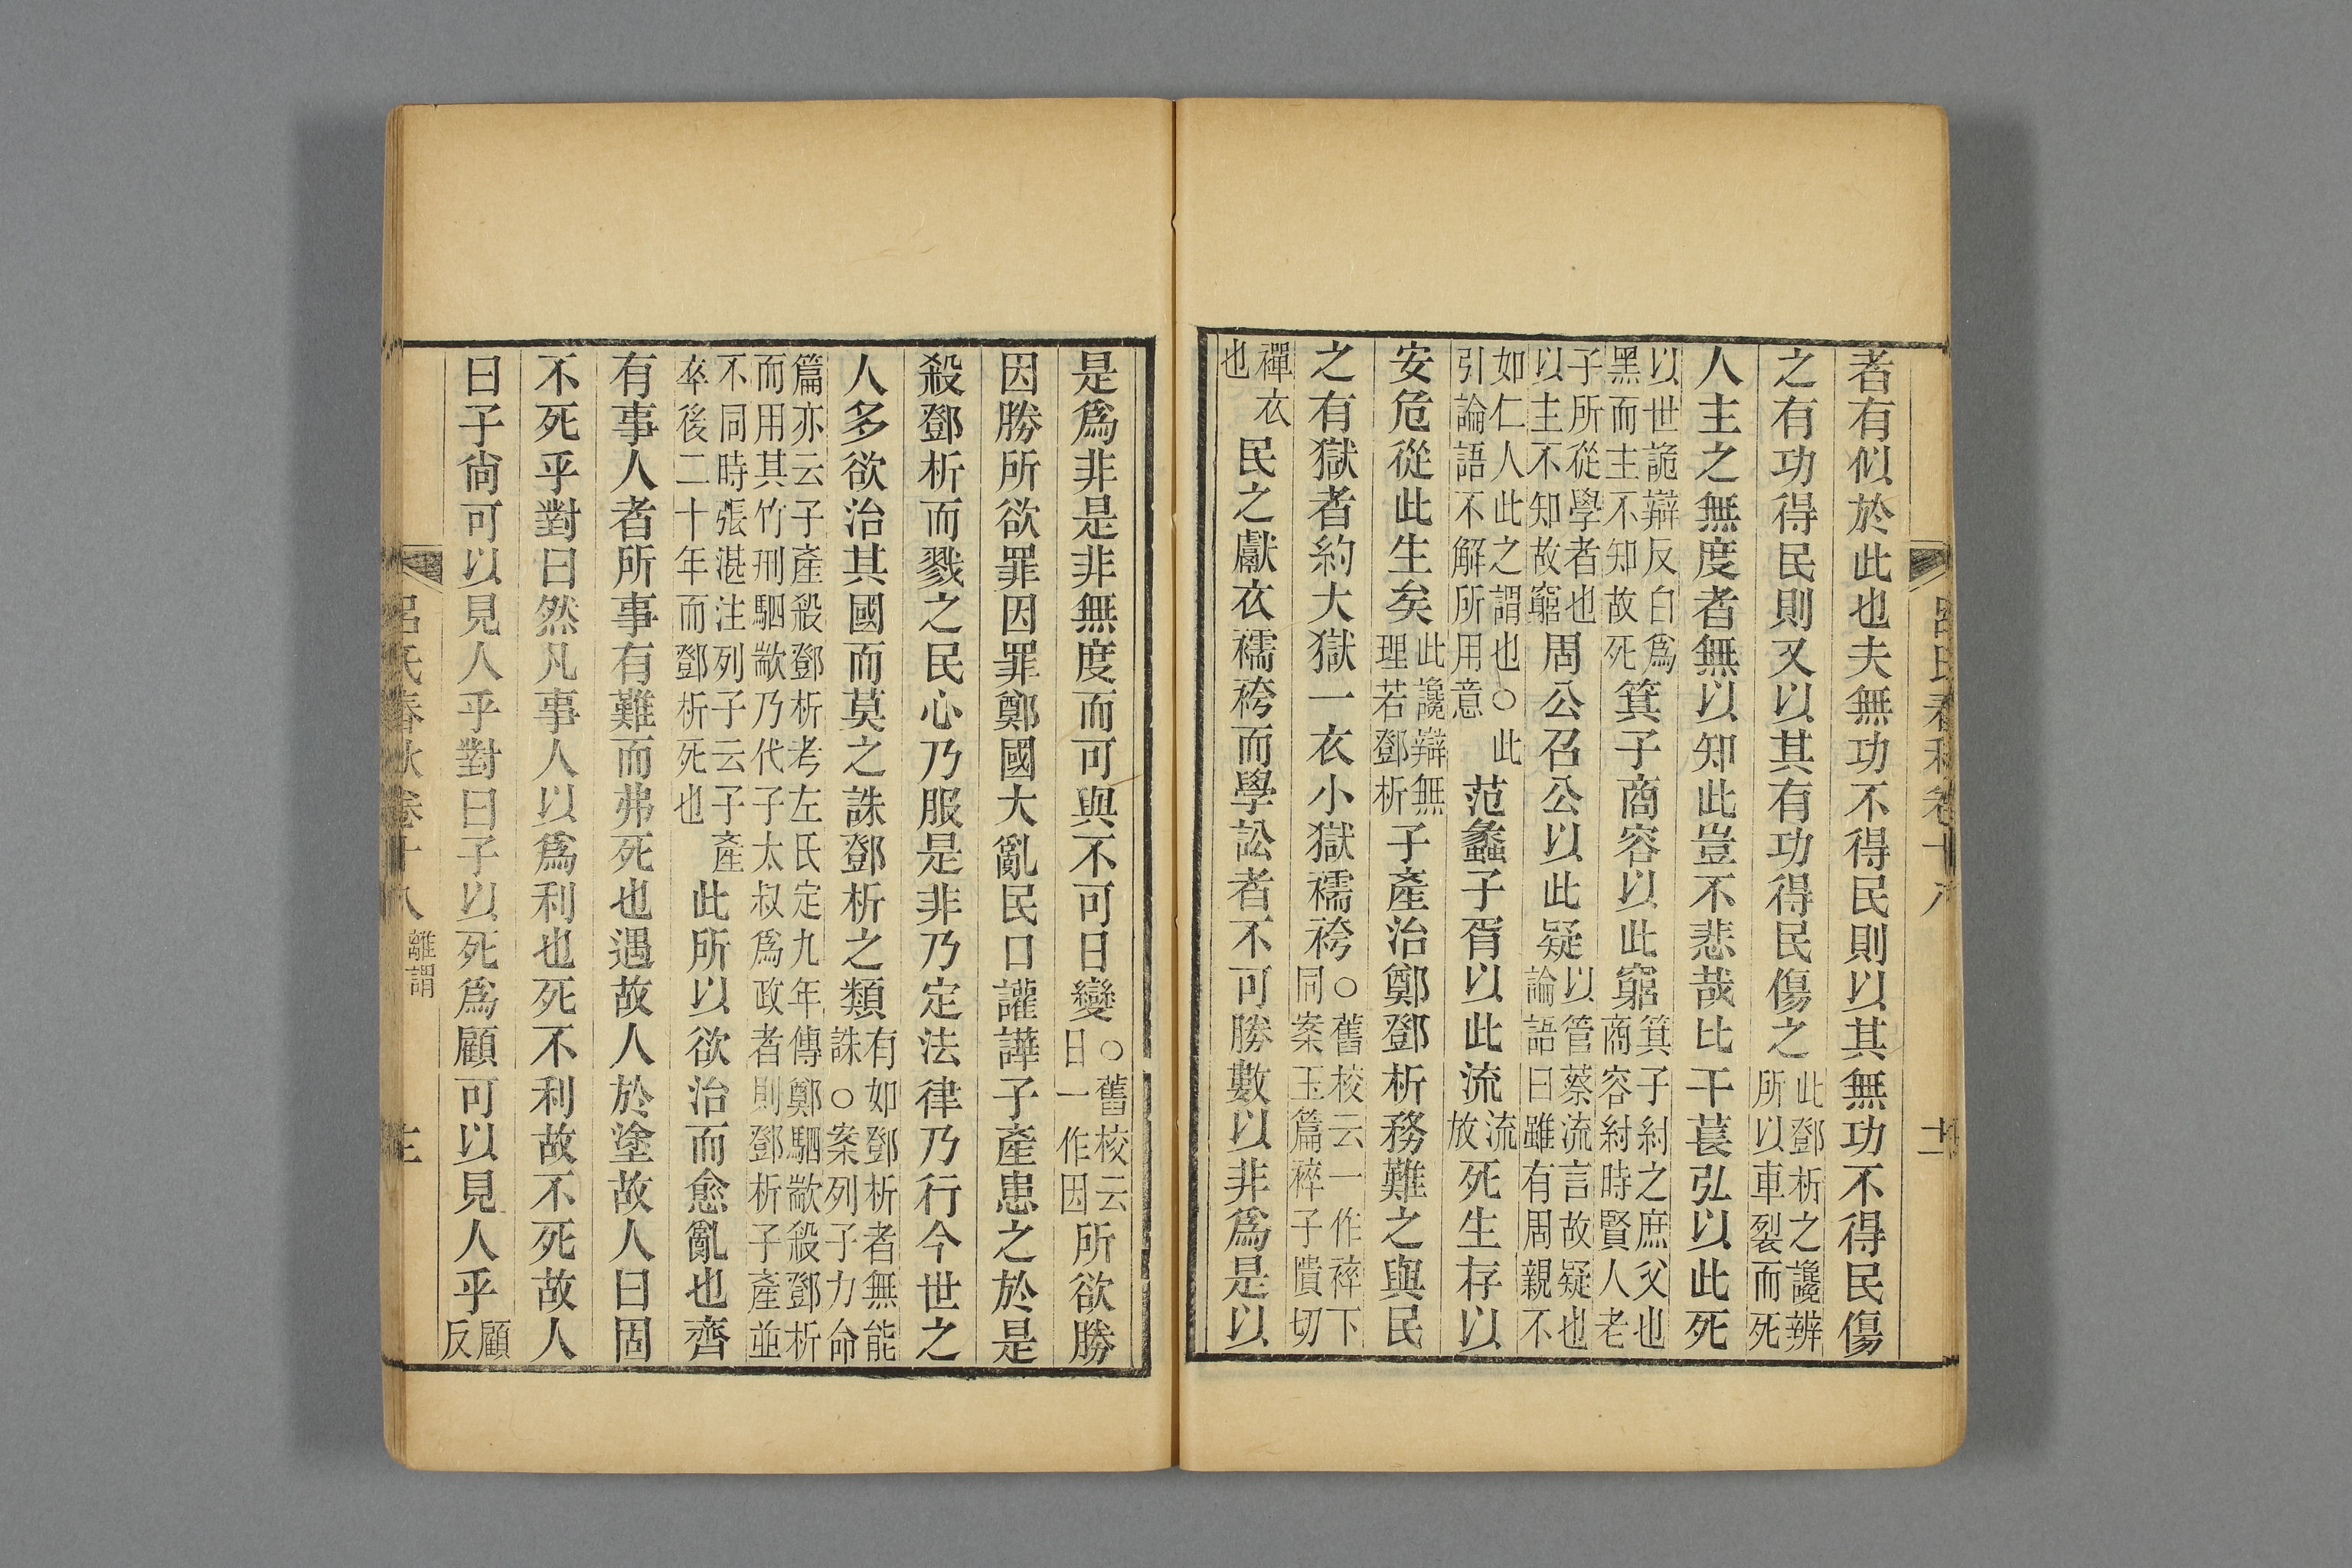 者有似於此也夫無功不得民則以其無功不得民傷
之有功得民則又以其有功得民傷之此鄧析之讒辨所以車裂而死
人主之無度者無以知此豈不悲哉比干萇弘以此死
以世詭辯反白爲黑而主不知故死箕子商容以此窮箕子紂之庶父也商容紂時賢人老
子所從學者也以主不知故窮周公召公以此疑以管蔡流言故疑也論語曰雖有周親不
如仁人此之謂也○此引論語不解所用意范蠡子胥以此流流放死生存以
安危從此生矣此讒辯無理若鄧析子產治鄭鄧析務難之與民
之有獄者約大獄一衣小獄襦袴○舊校云一作䘹下同案玉篇䘹子憒切
襌衣也民之獻衣襦袴而學訟者不可勝數以非爲是以
是爲非是非無度而可與不可日變○舊校云日一作因所欲勝
因勝所欲罪因罪鄭國大亂民口讙譁子產患之於是
殺鄧析而戮之民心乃服是非乃定法律乃行今世之
人多欲治其國而莫之誅鄧析之類有如鄧析者無能誅○案列子力命
篇亦云子產殺鄧析考左氏定九年傳鄭駟歂殺鄧析而用其竹刑駟歂乃代子太叔爲政者則鄧析子產並
不同時張湛注列子云子產卒後二十年而鄧析死也此所以欲治而愈亂也齊
有事人者所事有難而弗死也遇故人於塗故人曰固
不死乎對曰然凡事人以爲利也死不利故不死故人
曰子尙可以見人乎對曰子以死爲顧可以見人乎顧反
呂氏春秋卷十八 離謂